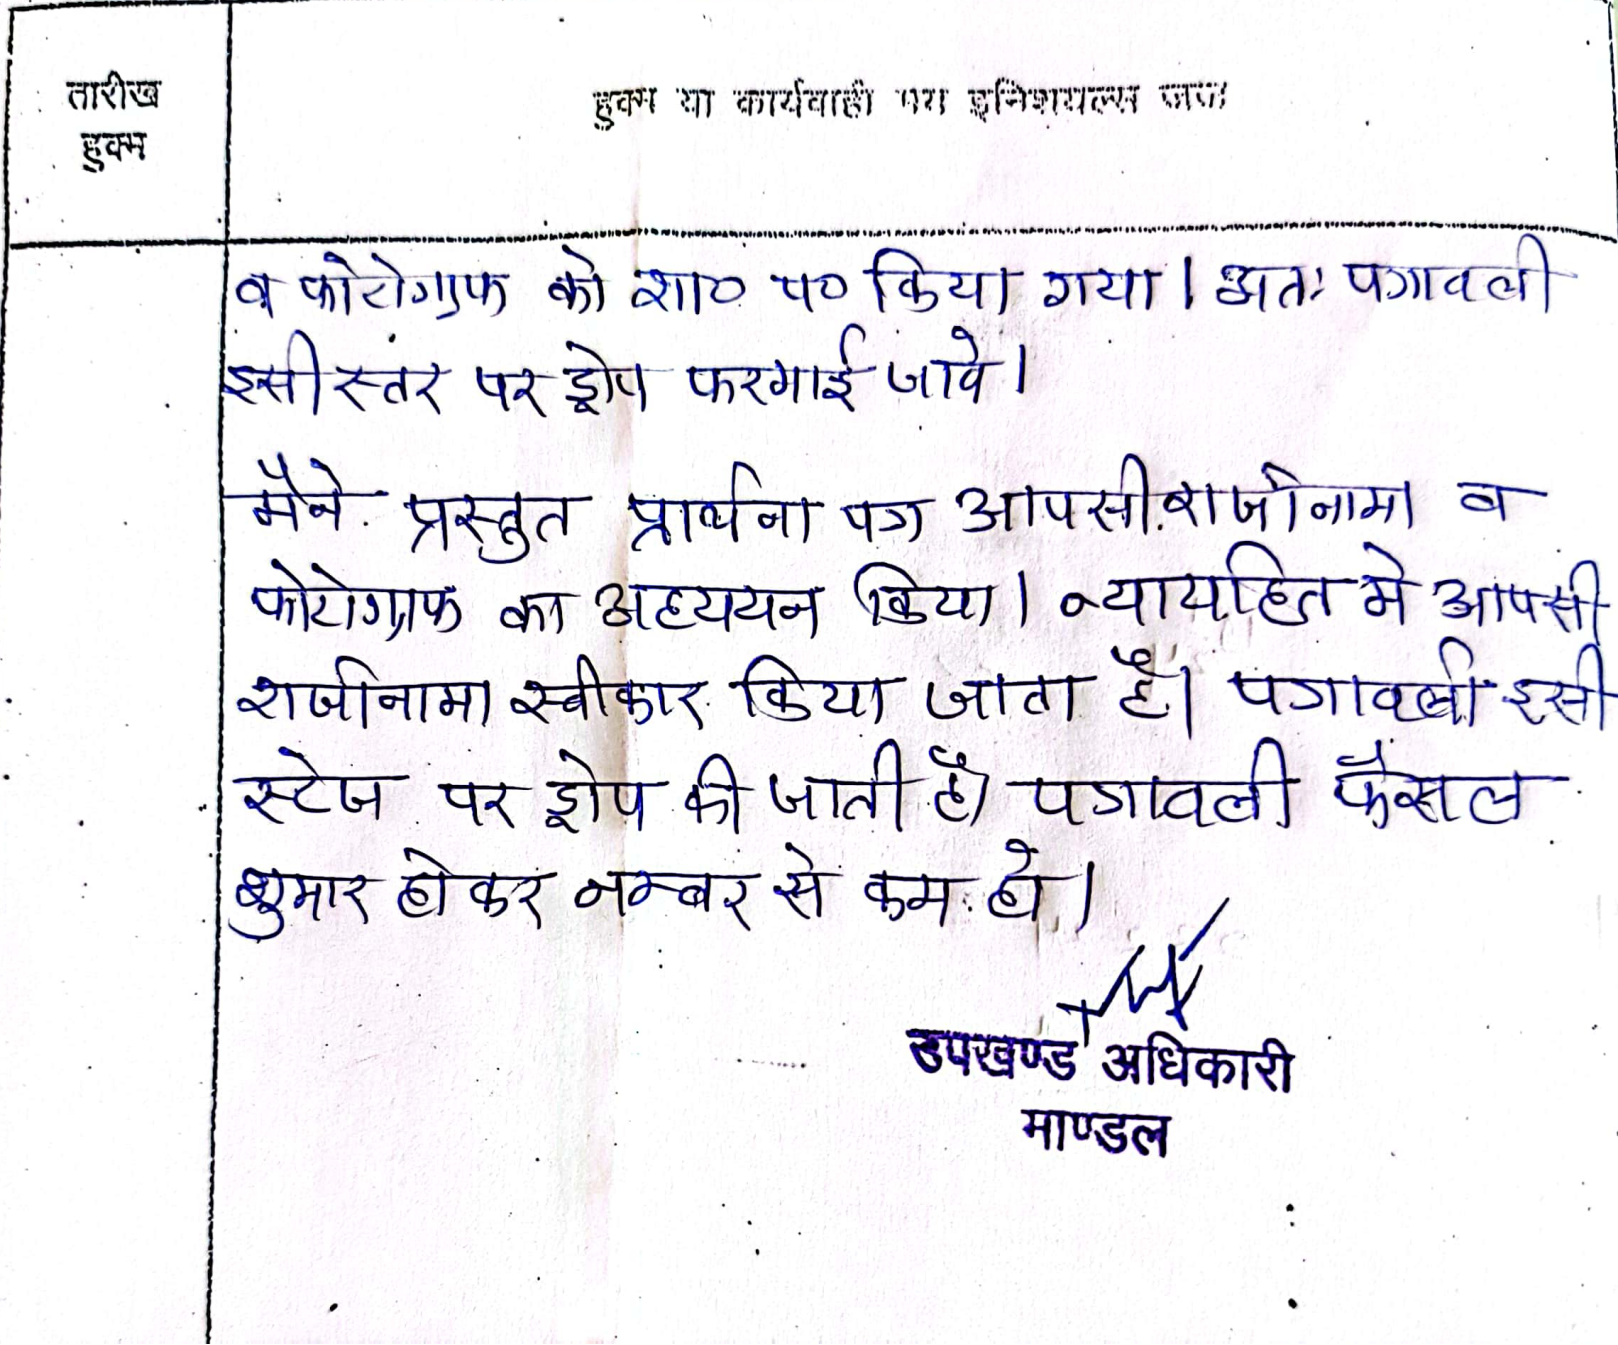 तारीख
हुक्म
हुक्म या कार्यवाही मय इनिशयल्स जज
व फोटोग्राफ को शा० प० किया गया। अतः पत्रावली
इसी स्तर पर ड्रोप फरमाई जावे।
मैने प्रस्तुत प्रार्थना पत्र आपसी राजीनामा व
फोटोग्राफ का अध्ययन किया। न्यायहित मे आपसी
राजीनामा स्वीकार किया जाता है। पत्रावली इसी
स्टेज पर ड्रोप की जाती है। पत्रावली फैसल
शुमार होकर नम्बर से कम हो।
उपखण्ड अधिकारी
माण्डल